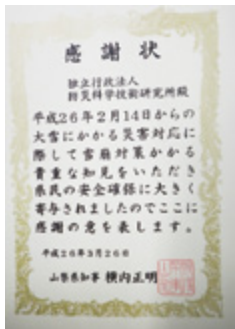 感謝状
独立行政法人
防災科学技術研究所殿
平成26年2月14日からの
大雪にかかる災害対応に
際して雪崩対策かかる
貴重な知見をいただき
県民の安全確保に大きく
寄与されましたのでここに
感謝の意を表します。
平成26年3月26日
山梨県知事 横内正明